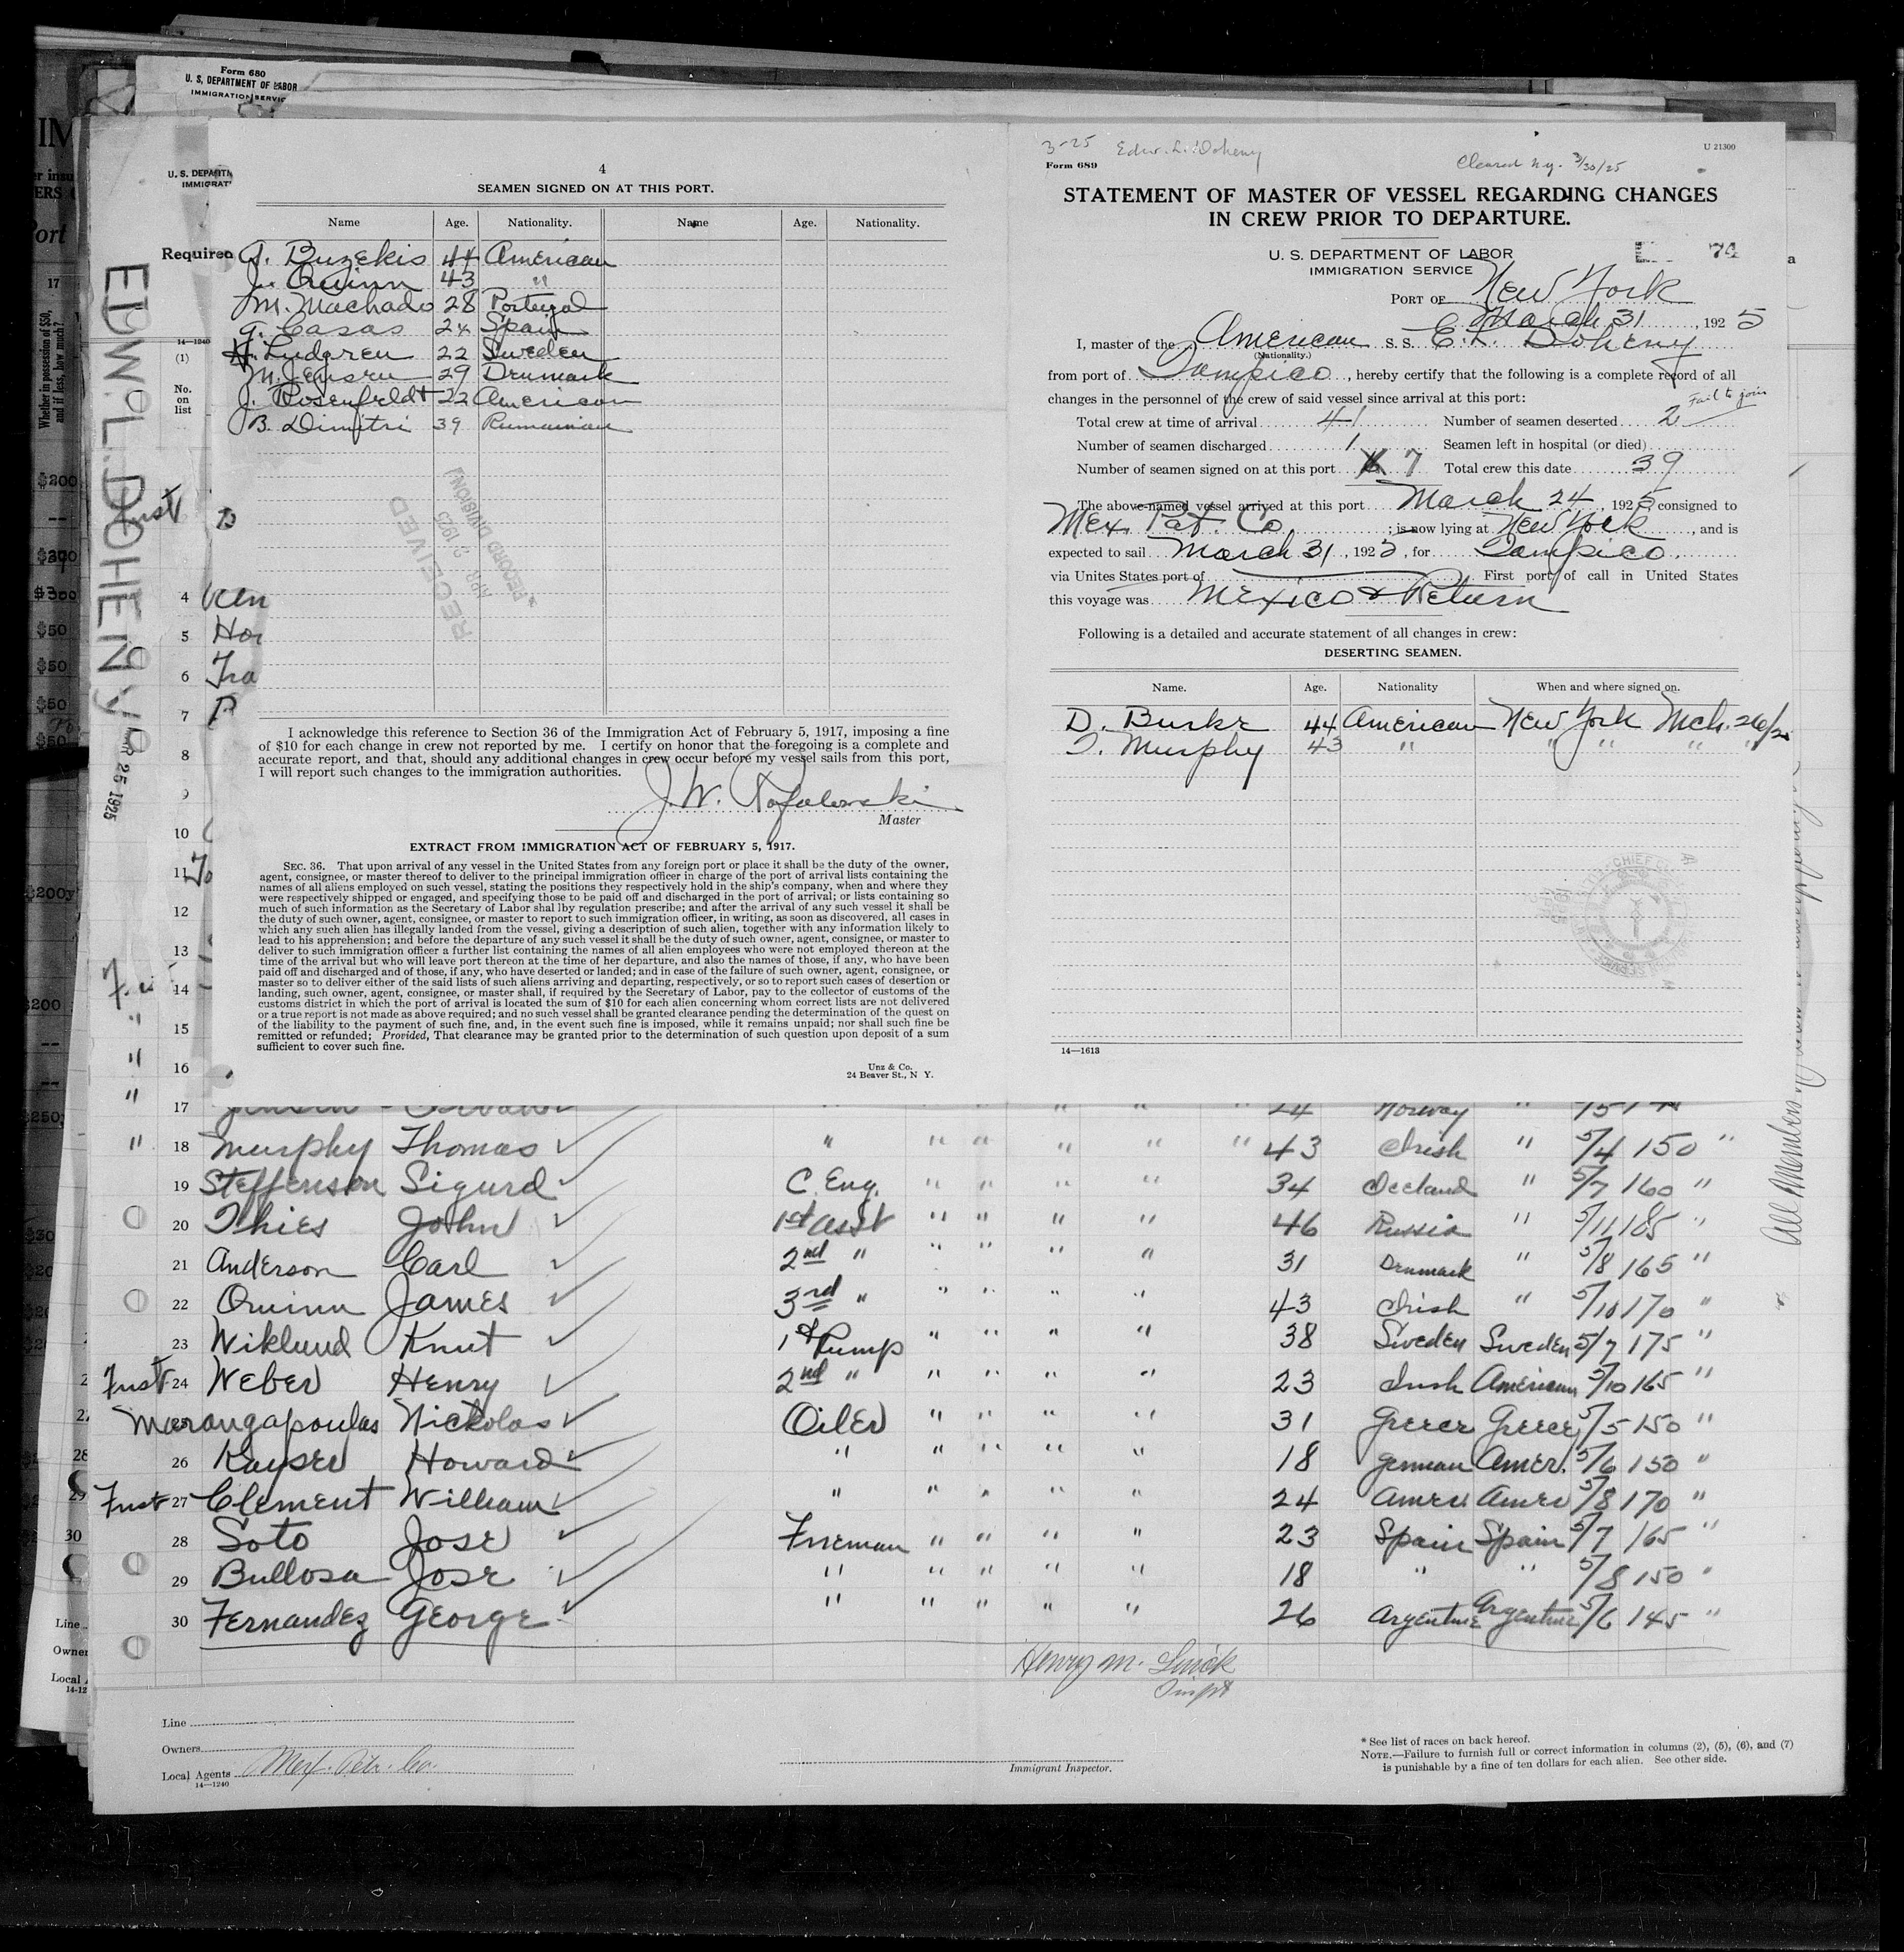 Form 680
U. S. DEPARTMENT OF LABOR
IMMIGRATION SERVIC
U. S. DEPARTM
IMMIGRAT
Required
EDW. L. DOHENY
MAR 25 1925
4
SEAMEN SIGNED ON AT THIS PORT.
Name Age. Nationality. Name Age. Nationality.
A. Buzekis 44 American
J. Quinn 43 "
M. Machado 28 Portugal
G. Casas 24 Spain
H. Lindgren 22 Sweden
M. Jensen 29 Denmark
J. Rosenfeldt 22 American
B. Dimitri 39 Rumainian
RECEIVED
APR 2 1925
RECORD DIVISION
I acknowledge this reference to Section 36 of the Immigration Act of February 5, 1917, imposing a fine
of $10 for each change in crew not reported by me. I certify on honor that the foregoing is a complete and
accurate report, and that, should any additional changes in crew occur before my vessel sails from this port,
I will report such changes to the immigration authorities.
J. W.
Master
EXTRACT FROM IMMIGRATION ACT OF FEBRUARY 5, 1917.
SEC. 36. That upon arrival of any vessel in the United States from any foreign port or place it shall be the duty of the owner,
agent, consignee, or master thereof to deliver to the principal immigration officer in charge of the port of arrival lists containing the
names of all aliens employed on such vessel, stating the positions they respectively hold in the ship's company, when and where they
were respectively shipped or engaged, and specifying those to be paid off and discharged in the port of arrival; or lists containing so
much of such information as the Secretary of Labor shal lby regulation prescribe; and after the arrival of any such vessel it shall be
the duty of such owner, agent, consignee, or master to report to such immigration officer, in writing, as soon as discovered, all cases in
which any such alien has illegally landed from the vessel, giving a description of such alien, together with any information likely to
lead to his apprehension; and before the departure of any such vessel it shall be the duty of such owner, agent, consignee, or master to
deliver to such immigration officer a further list containing the names of all alien employees who were not employed thereon at the
time of the arrival but who will leave port thereon at the time of her departure, and also the names of those, if any, who have been
paid off and discharged and of those, if any, who have deserted or landed; and in case of the failure of such owner, agent, consignee, or
master so to deliver either of the said lists of such aliens arriving and departing, respectively, or so to report such cases of desertion or
landing, such owner, agent, consignee, or master shall, if required by the Secretary of Labor, pay to the collector of customs of the
customs district in which the port of arrival is located the sum of $10 for each alien concerning whom correct lists are not delivered
or a true report is not made as above required; and no such vessel shall be granted clearance pending the determination of the quest on
of the liability to the payment of such fine, and, in the event such fine is imposed, while it remains unpaid; nor shall such fine be
remitted or refunded; Provided, That clearance may be granted prior to the determination of such question upon deposit of a sum
sufficient to cover such fine.
Unz & Co.
24 Beaver St., N Y.
3-25 Edw. L. Doheny
Cleared N.y. 3/30/25
U 21300
Form 689
STATEMENT OF MASTER OF VESSEL REGARDING CHANGES
IN CREW PRIOR TO DEPARTURE.
U. S. DEPARTMENT OF LABOR
IMMIGRATION SERVICE
74
PORT OF New York
March 31, 1925
I, master of the American S. S. E. L. Doheny
(Nationality.)
from port of Tampico, hereby certify that the following is a complete record of all
changes in the personnel of the crew of said vessel since arrival at this port:
Total crew at time of arrival 41 Number of seamen deserted 2 Fail to join
Number of seamen discharged 1 Seamen left in hospital (or died)
Number of seamen signed on at this port 7 Total crew this date 39
The above-named vessel arrived at this port March 24, 1925 consigned to
Mex. Pet. Co. ; is now lying at New York, and is
expected to sail March 31, 1925, for Tampico.
via Unites States port of First port of call in United States
this voyage was Mexico & Return
Following is a detailed and accurate statement of all changes in crew:
DESERTING SEAMEN.
Name. Age. Nationality When and where signed on.
D. Burke 44 American New York Mch. 26/25
T. Murphy 43 " " " " "
14—1613
17 24 Norway "
" 18 Murphy Thomas " " " " " " 43 Irish " 5/4 150 "
19 Steffenson Sigurd C. Eng. " " " " 34 Iceland " 5/7 160 "
20 Thies John 1st asst " " " " 46 Russia " 5/11 185 "
21 Anderson Carl 2nd " " " " " 31 Denmark " 5/8 165 "
22 Quinn James 3rd " " " " " 43 Irish " 5/10 170 "
23 Wiklund Knut 1st Pump " " " " 38 Sweden Sweden 5/7 175 "
First 24 Weber Henry 2nd " " " " " 23 Irish American 5/10 165 "
Marangapoulas Nickolas Oiler " " " " 31 Greece Greece 5/5 150 "
26 Kayser Howard " " " " " 18 German Amer. 5/6 150 "
First 27 Clement William " " " " " 24 Amer Amer 5/8 170 "
28 Soto Jose Fireman " " " " 23 Spain Spain 5/7 165 "
29 Bullosa Jose " " " " " 18 " " 5/8 150 "
30 Fernandez George " " " " " 26 Argentine Argentine 5/6 145 "
Henry M.
Insp
Line
Owners
Local Agents Mex. Petr. Co.
14—1240
Immigrant Inspector.
* See list of races on back hereof.
NOTE.—Failure to furnish full or correct information in columns (2), (5), (6), and (7)
is punishable by a fine of ten dollars for each alien. See other side.